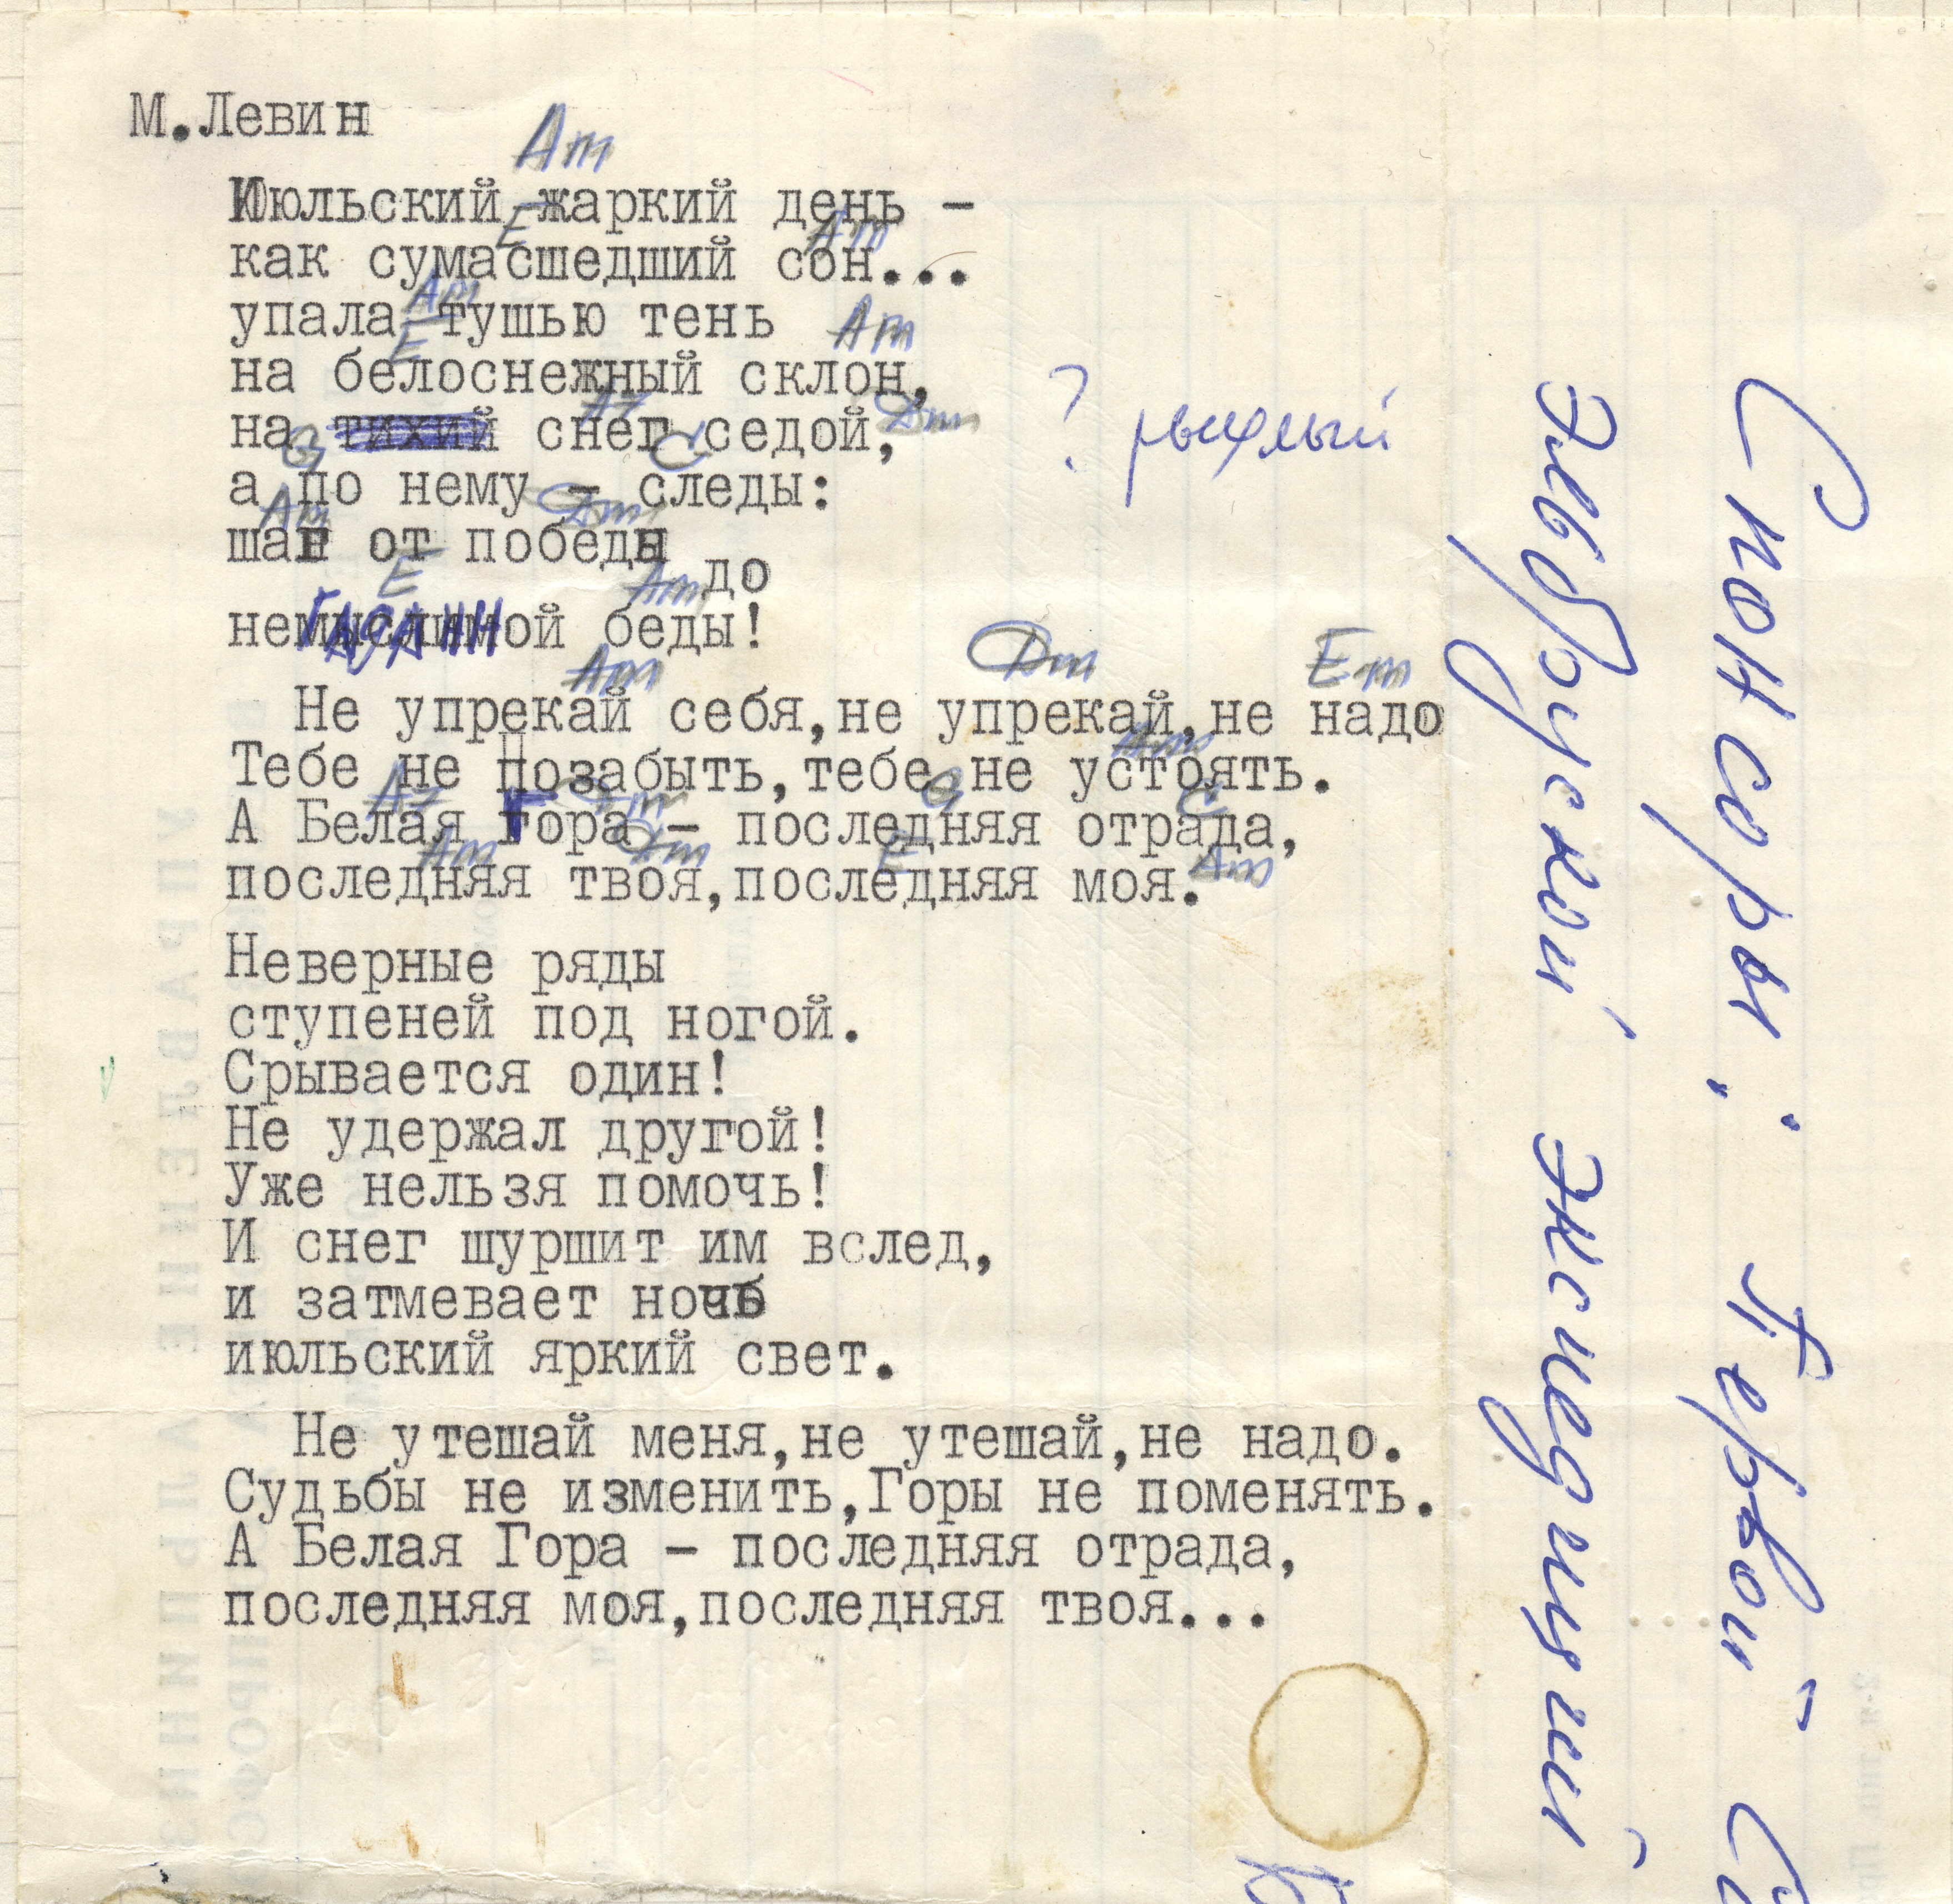 М.Левин
Am
Июльский жаркий день -
E Am
как сумасшедший сон...
Am
упала тушью тень
E Am
на белоснежный склон,
A7 Dm
на тихий снег седой, ? рыхлый
G C
а по нему - следы:
Am Dm
шаг от победы
до
E Am
немыслимой беды!
Am Dm Em
Не упрекай себя,не упрекай,не надо
Am
Тебе не позабыть,тебе не устоять.
A7 Dm G C
А Белая Гора - последняя отрада,
Am Dm E Am
последняя твоя,последняя моя.
Неверные ряды
ступеней под ногой.
Срывается один!
Не удержал другой!
Уже нельзя помочь!
И снег шуршит им вслед,
и затмевает ночь
июльский яркий свет.
Не утешай меня,не утешай,не надо.
Судьбы не изменить,Горы не поменять.
А Белая Гора - последняя отрада,
последняя моя,последняя твоя...
Спонсоры "Первой
Эльбрусской Экспедиции